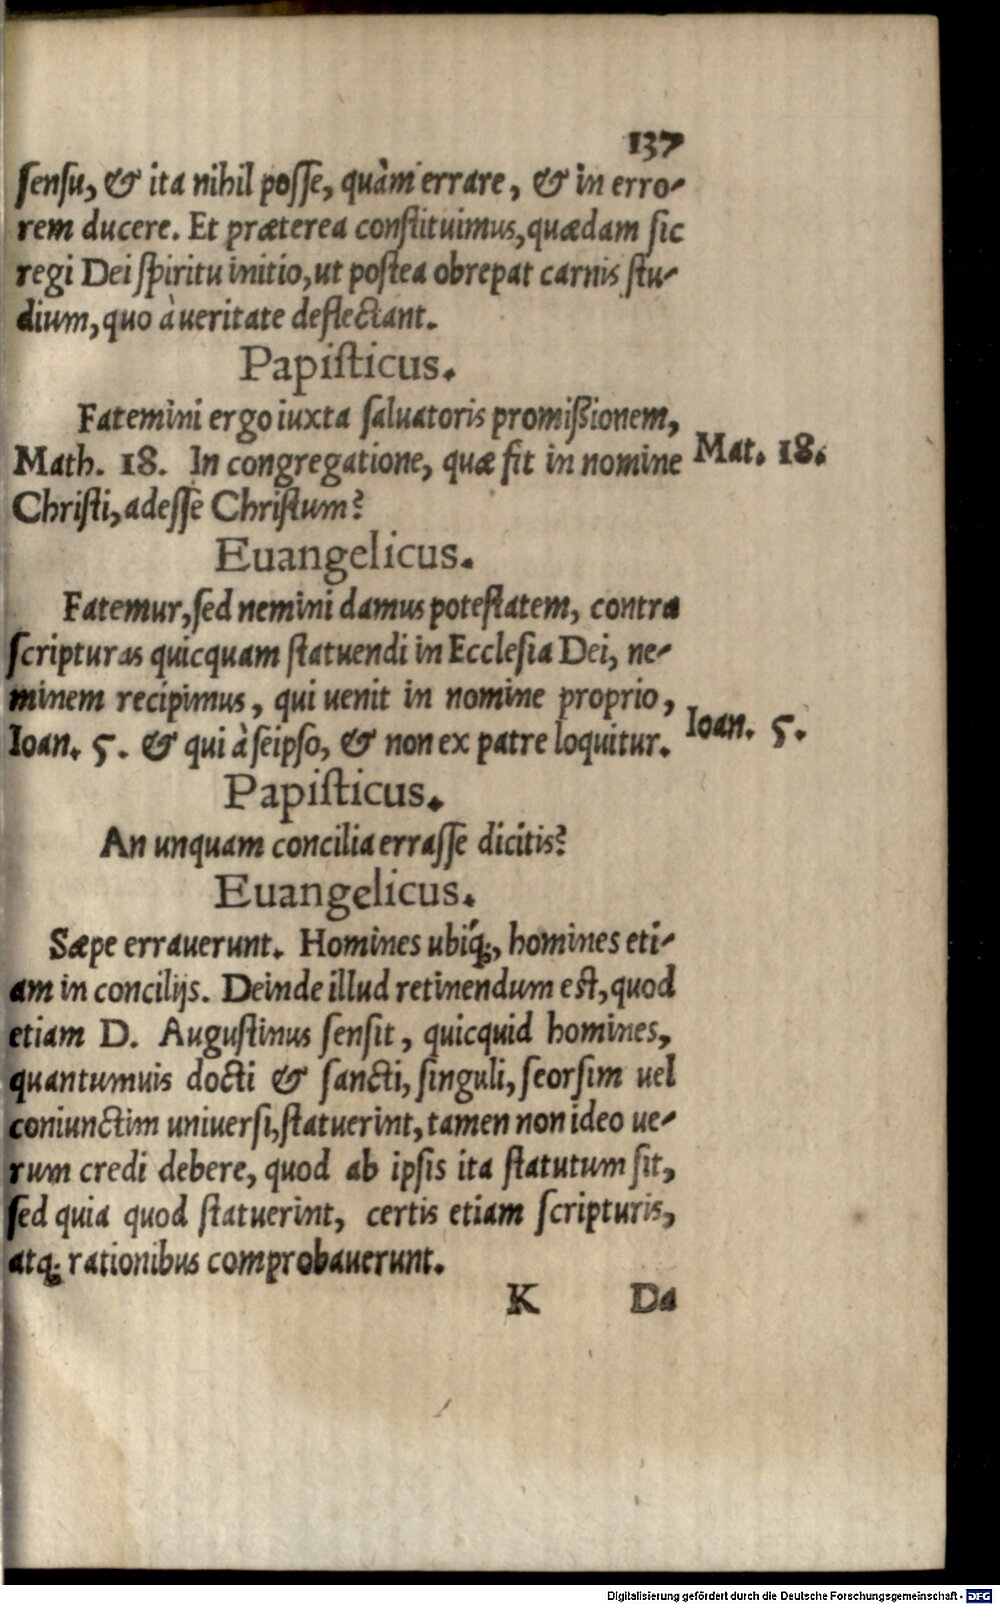 137
sensu, & ita nihil posse, quàm errare, & in erro-
rem ducere. Et præterea constituimus, quædam sic
regi Dei spiritu initio, ut postea obrepat carnis stu-
dium, quo à ueritate deflectant.
Papisticus.
Fatemini ergo iuxta saluatoris promißionem,
Math. 18. In congregatione, quæ fit in nomine
Mat. 18.
Christi, adesse Christum?
Euangelicus.
Fatemur, sed nemini damus potestatem, contra
scripturas quicquam statuendi in Ecclesia Dei, ne-
minem recipimus, qui uenit in nomine proprio,
Ioan. 5. & qui à seipso, & non ex patre loquitur.
Ioan. 5.
Papisticus.
An unquam concilia errasse dicitis?
Euangelicus.
Sæpe errauerunt. Homines ubiq́;, homines eti-
am in concilijs. Deinde illud retinendum est, quod
etiam D. Augustinus sensit, quicquid homines,
quantumuis docti & sancti, singuli, seorsim uel
coniunctim uniuersi, statuerint, tamen non ideo ue-
rum credi debere, quod ab ipsis ita statutum sit,
sed quia quod statuerint, certis etiam scripturis,
atq; rationibus comprobauerunt.
K Da
Digitalisierung gefördert durch die Deutsche Forschungsgemeinschaft - DFG